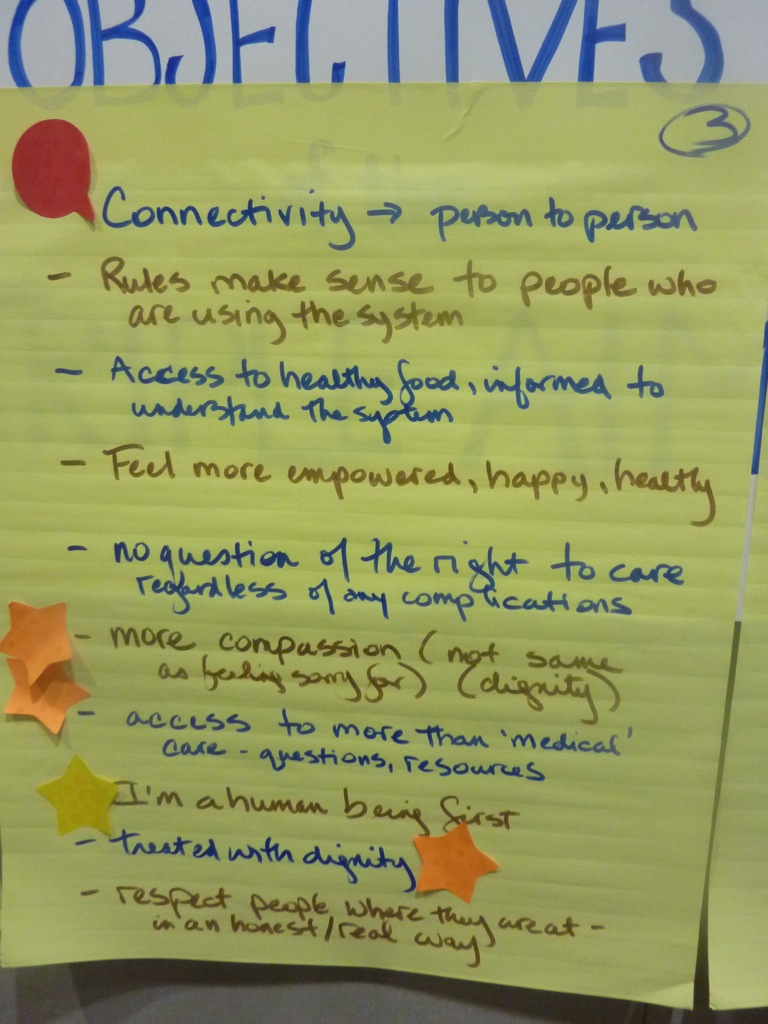 OBJECTIVES
3
Connectivity → person to person
- Rules make sense to people who
are using the system
- Access to healthy food, informed to
understand the system
- Feel more empowered, happy, healthy
- no question of the right to care
regardless of any complications
- more compassion (not same
as feeling sorry for) (dignity)
- access to more than 'medical'
care - questions, resources
I'm a human being first
- treated with dignity
- respect people where they are at -
in an honest/real way